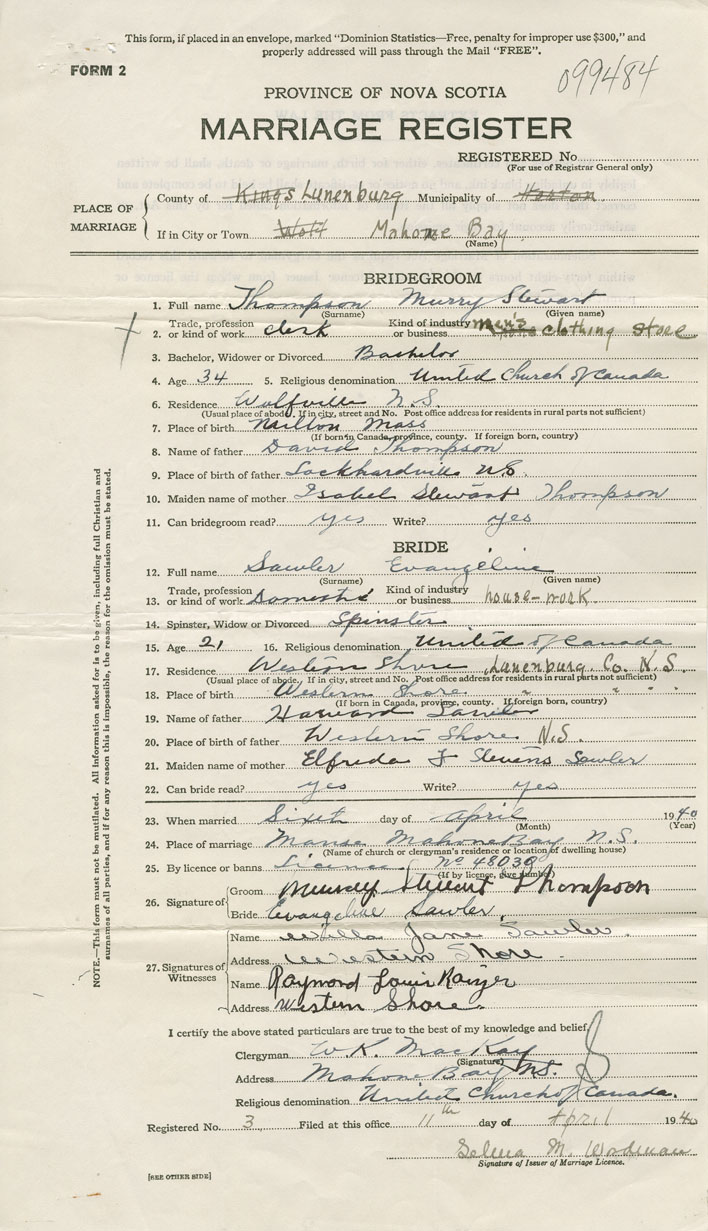 This form, if placed in an envelope, marked "Dominion Statistics—Free, penalty for improper use $300," and
properly addressed will pass through the Mail "FREE".
FORM 2
099484
PROVINCE OF NOVA SCOTIA
MARRIAGE REGISTER
REGISTERED No
(For use of Registrar General only)
PLACE OF MARRIAGE
County of Kings Lunenburg Municipality of Horton
If in City or Town Wolf Mahone Bay
(Name)
BRIDEGROOM
1. Full name Thompson Murry Stewart
(Surname) (Given name)
2. Trade, profession or kind of work clerk Kind of industry or business men's clothing store
3. Bachelor, Widower or Divorced Bachelor
4. Age 34 5. Religious denomination United Church of Canada
6. Residence Wolfville N.S.
(Usual place of abode. If in city, street and No. Post office address for residents in rural parts not sufficient)
7. Place of birth Milton Mass
(If born in Canada, province, county. If foreign born, country)
8. Name of father David Thompson
9. Place of birth of father Lockhardville N.S.
10. Maiden name of mother Isabel Stewart Thompson
11. Can bridegroom read? yes Write? yes
BRIDE
12. Full name Sawler Evangeline
(Surname) (Given name)
13. Trade, profession or kind of work Domestic Kind of industry or business house-work.
14. Spinster, Widow or Divorced Spinster
15. Age 21 16. Religious denomination United of Canada
17. Residence Western Shore Lunenburg Co. N.S.
(Usual place of abode. If in city, street and No. Post office address for residents in rural parts not sufficient)
18. Place of birth Western Shore " " "
(If born in Canada, province, county. If foreign born, country)
19. Name of father Harvard Sawler
20. Place of birth of father Western Shore N.S.
21. Maiden name of mother Elfreda F Stevens Sawler
22. Can bride read? yes Write? yes
23. When married Sixet day of April 1940
(Month) (Year)
24. Place of marriage Manse Mahone Bay N.S.
(Name of church or clergyman's residence or location of dwelling house)
25. By licence or banns Licence No 48030
(If by licence, give number)
26. Signature of
Groom Murray Stewart Thompson
Bride Evangeline Sawler
27. Signatures of Witnesses
Name Willa Jane Sawler
Address Western Shore
Name Raymond Louis
Address Western Shore.
NOTE.—This form must not be mutilated. All Information asked for is to be given, including full Christian and
surnames of all parties, and if for any reason this is impossible, the reason for the omission must be stated.
I certify the above stated particulars are true to the best of my knowledge and belief
Clergyman W.K. MacKay
(Signature)
Address Mahone Bay N.S.
Religious denomination United Church of Canada.
Registered No. 3 Filed at this office 11th day of April 1940
Selma M. Wodman
Signature of Issuer of Marriage Licence.
[SEE OTHER SIDE]